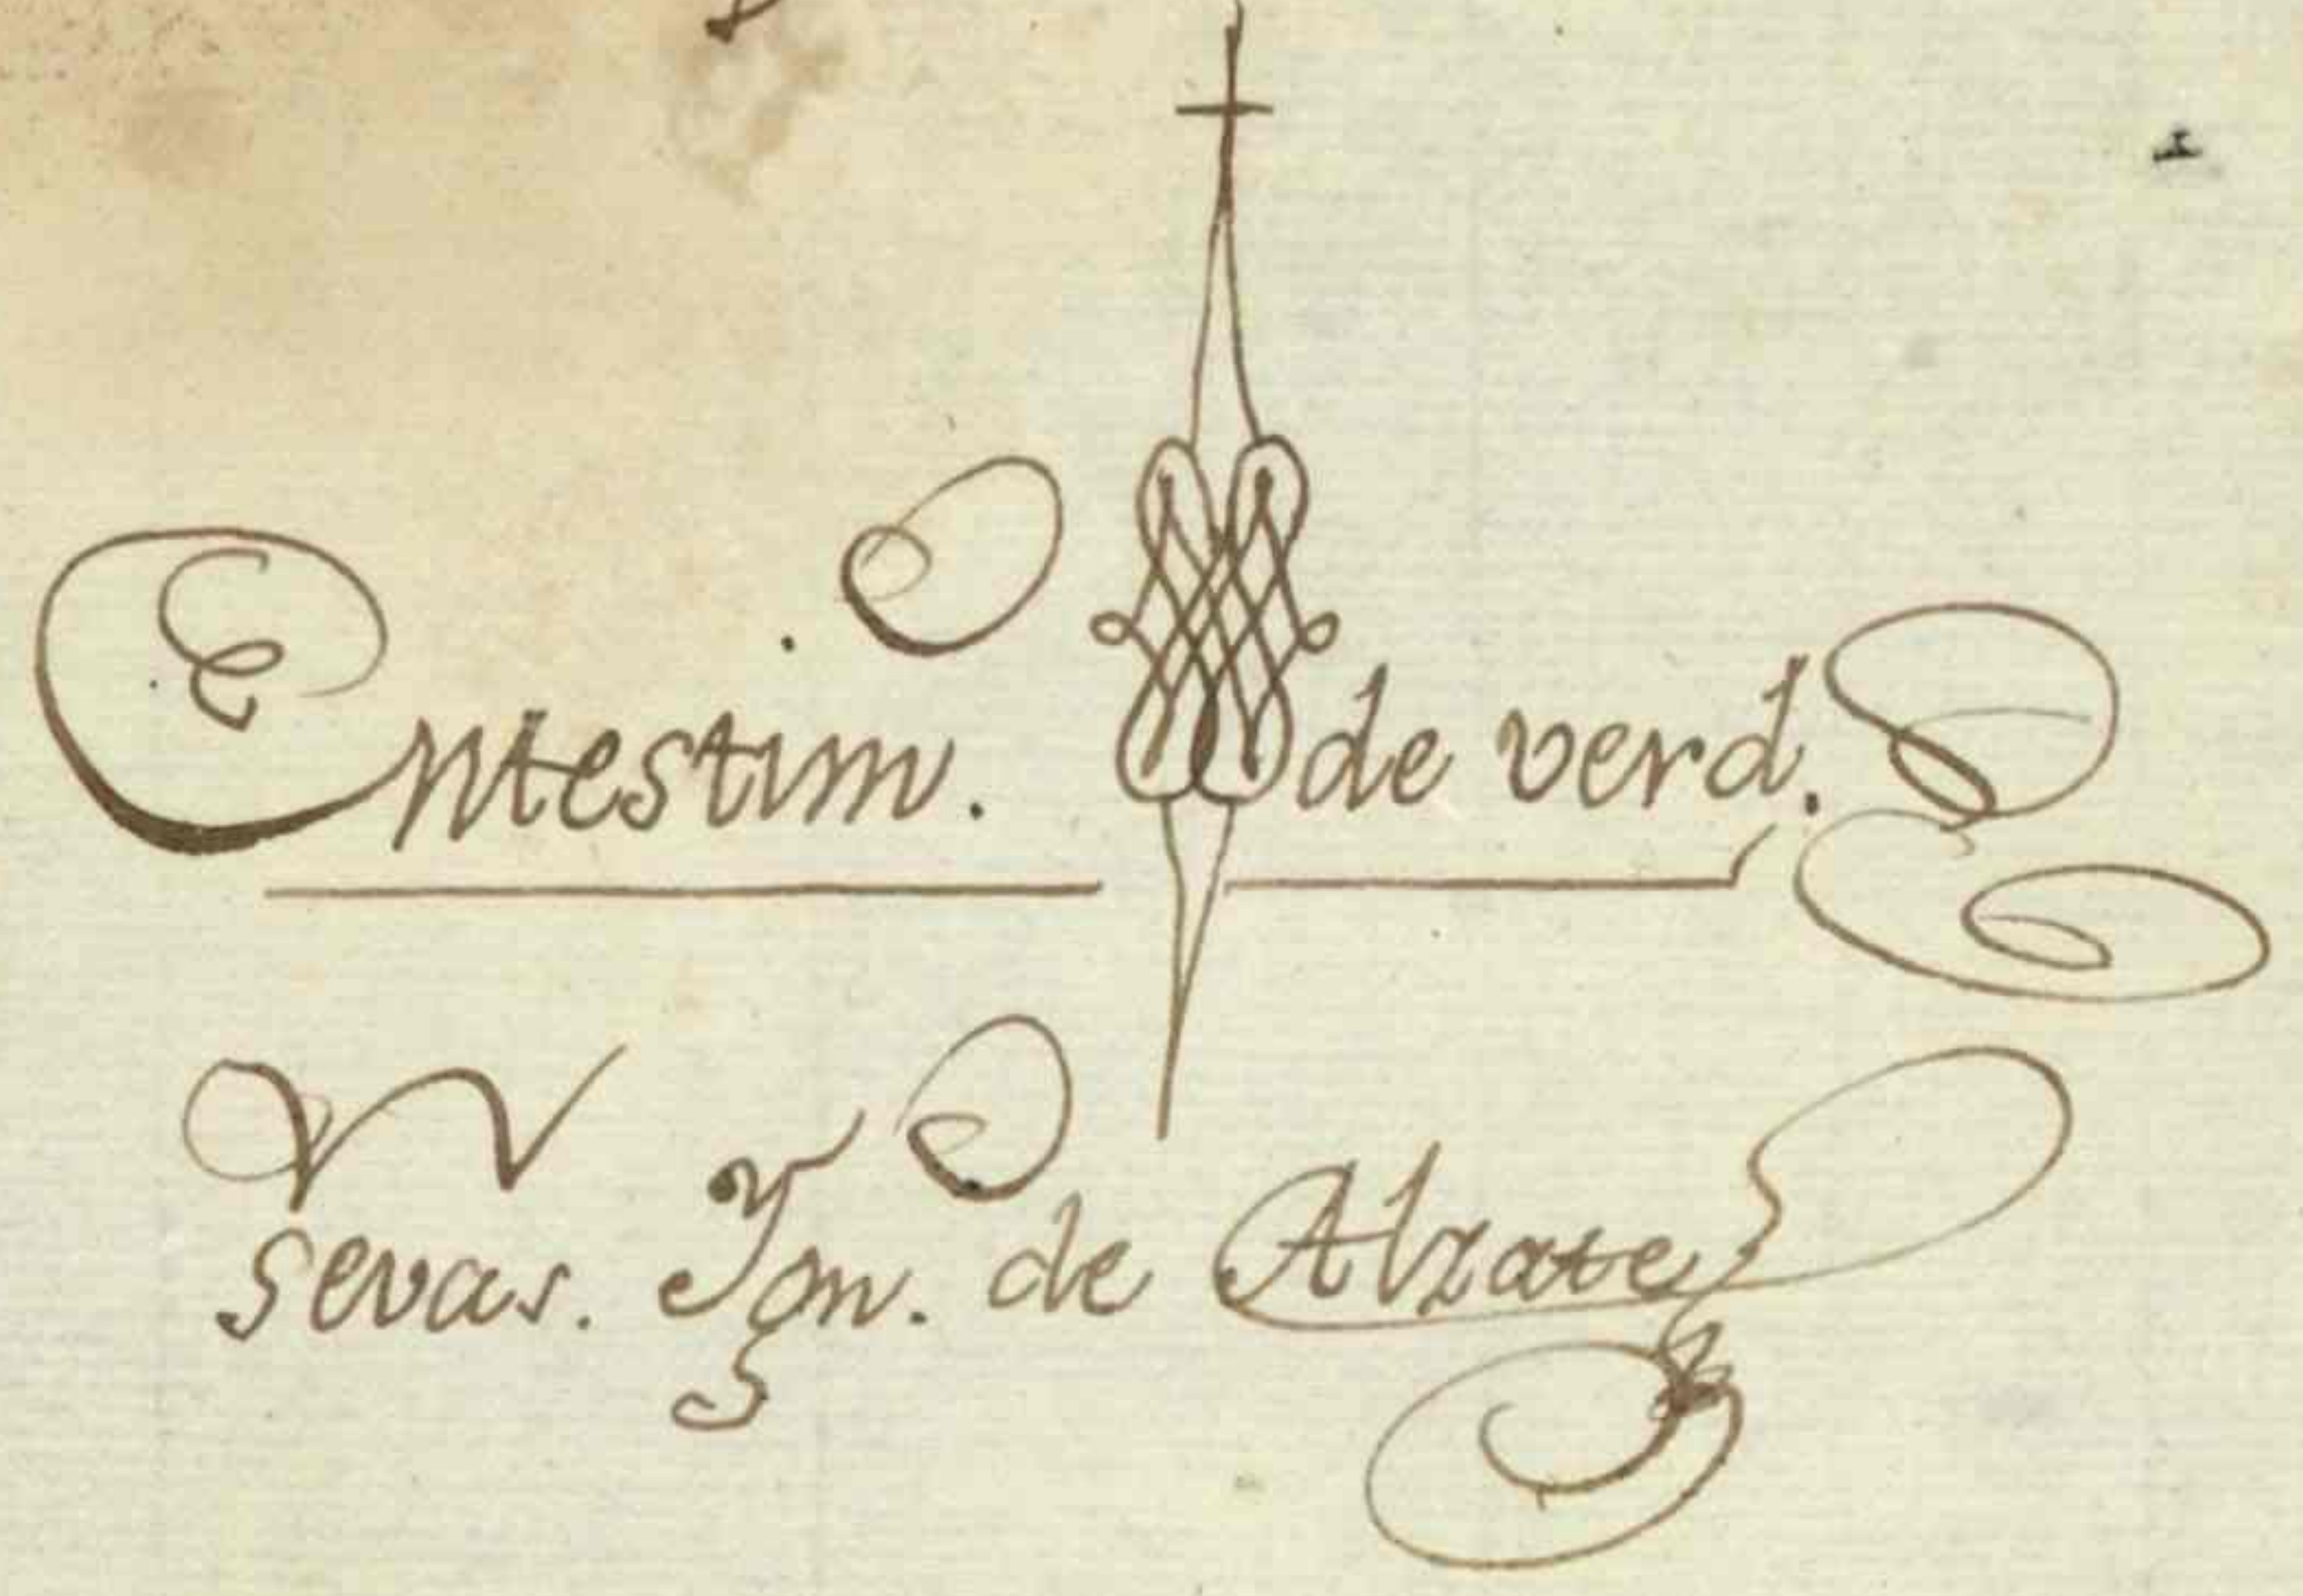 Entestim.º de verd.ᵈ
sevas.ⁿ Ygn.º de Alzate